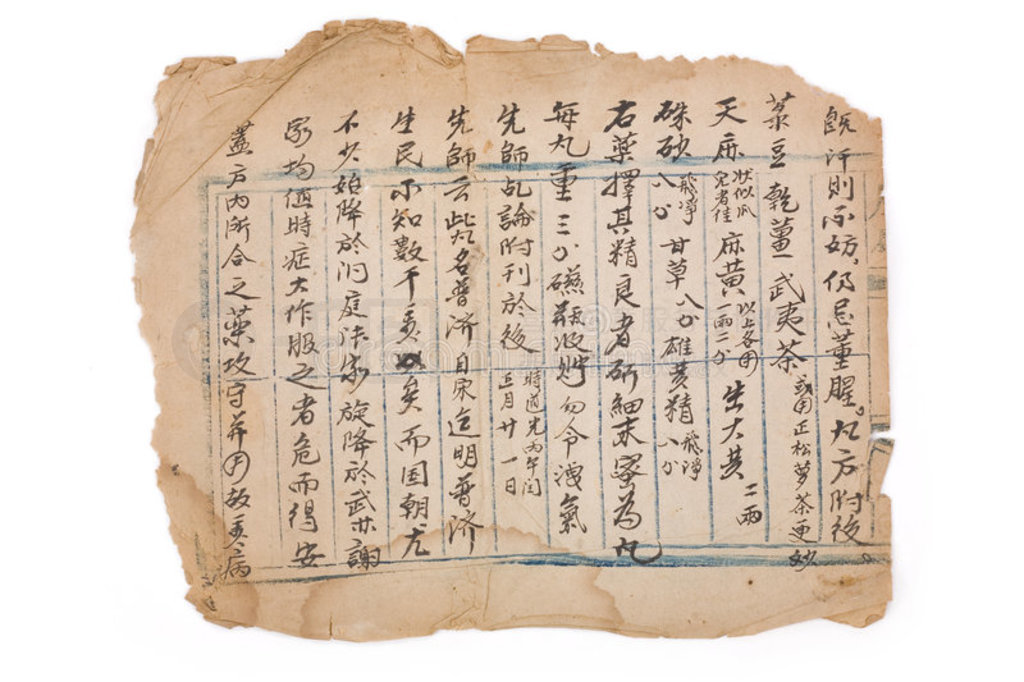 既汗則不妨,仍忌葷腥。丸方附後
菉豆 乾薑 武夷茶 或用正松萝茶更妙
天麻 狀似瓜完者佳 麻黃 以上各用一兩二分 生大黄 二兩
硃砂 飛净 八分 甘草 八分 雄黄精 飛淨 八分
右藥擇其精良者研細末蜜為丸
每丸重三分磁瓶收贮勿令洩氣
先師乩論附刊於後 時道光丙午閏五月廿一日
先師云此丸名普济自宋迄明普济
生民不知數千萬矣而国朝尤
不少始降於洞庭法家旋降於武林謝
家均值時症大作服之者危而得安
蓋方内所合之藥攻守并用故其病